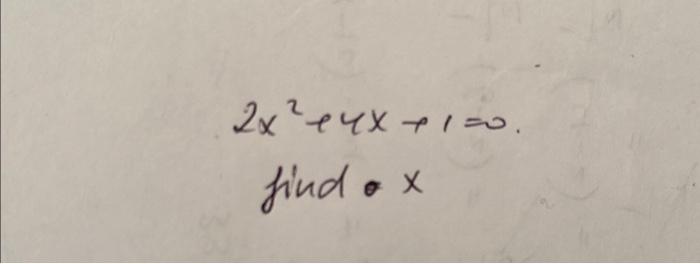 2x²+4x+1=0.
find x